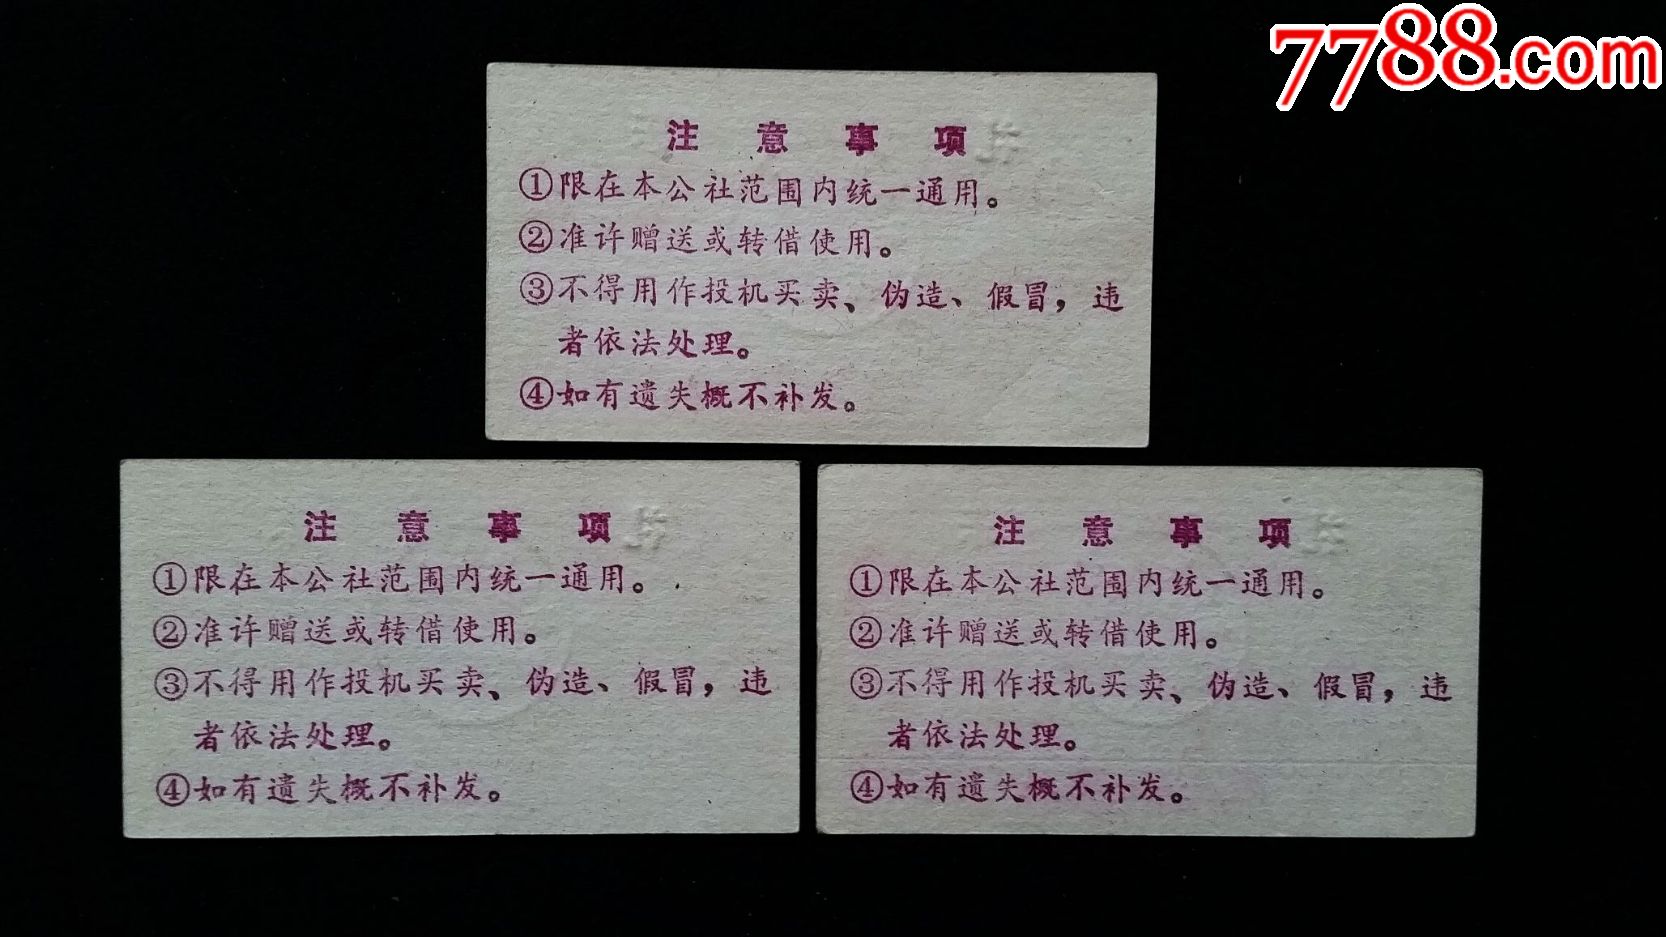 7788.com
注意事项
①限在本公社范围内统一通用。
②准许赠送或转借使用。
③不得用作投机买卖、伪造、假冒，违
者依法处理。
④如有遗失概不补发。
注意事项
①限在本公社范围内统一通用。
②准许赠送或转借使用。
③不得用作投机买卖、伪造、假冒，违
者依法处理。
④如有遗失概不补发。
注意事项
①限在本公社范围内统一通用。
②准许赠送或转借使用。
③不得用作投机买卖、伪造、假冒，违
者依法处理。
④如有遗失概不补发。